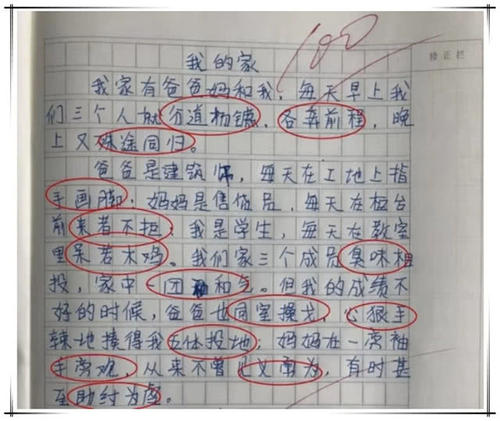 100
修正栏
我的家
我家有爸爸妈和我，每天早上我
们三个人就分道扬镳，各奔前程，晚
上又殊途同归。
爸爸是建筑师，每天在工地上指
手画脚，妈妈是售货员，每天在柜台
前来者不拒，我是学生，每天在教室
里呆若木鸡。我们家三个成员臭味相
投，家中一团和气。但我的成绩不
好的时候，爸爸也同室操戈，心狠手
辣地揍得我五体投地，妈妈在一旁袖
手旁观，从来不曾见义勇为，有时甚
至助纣为虐。